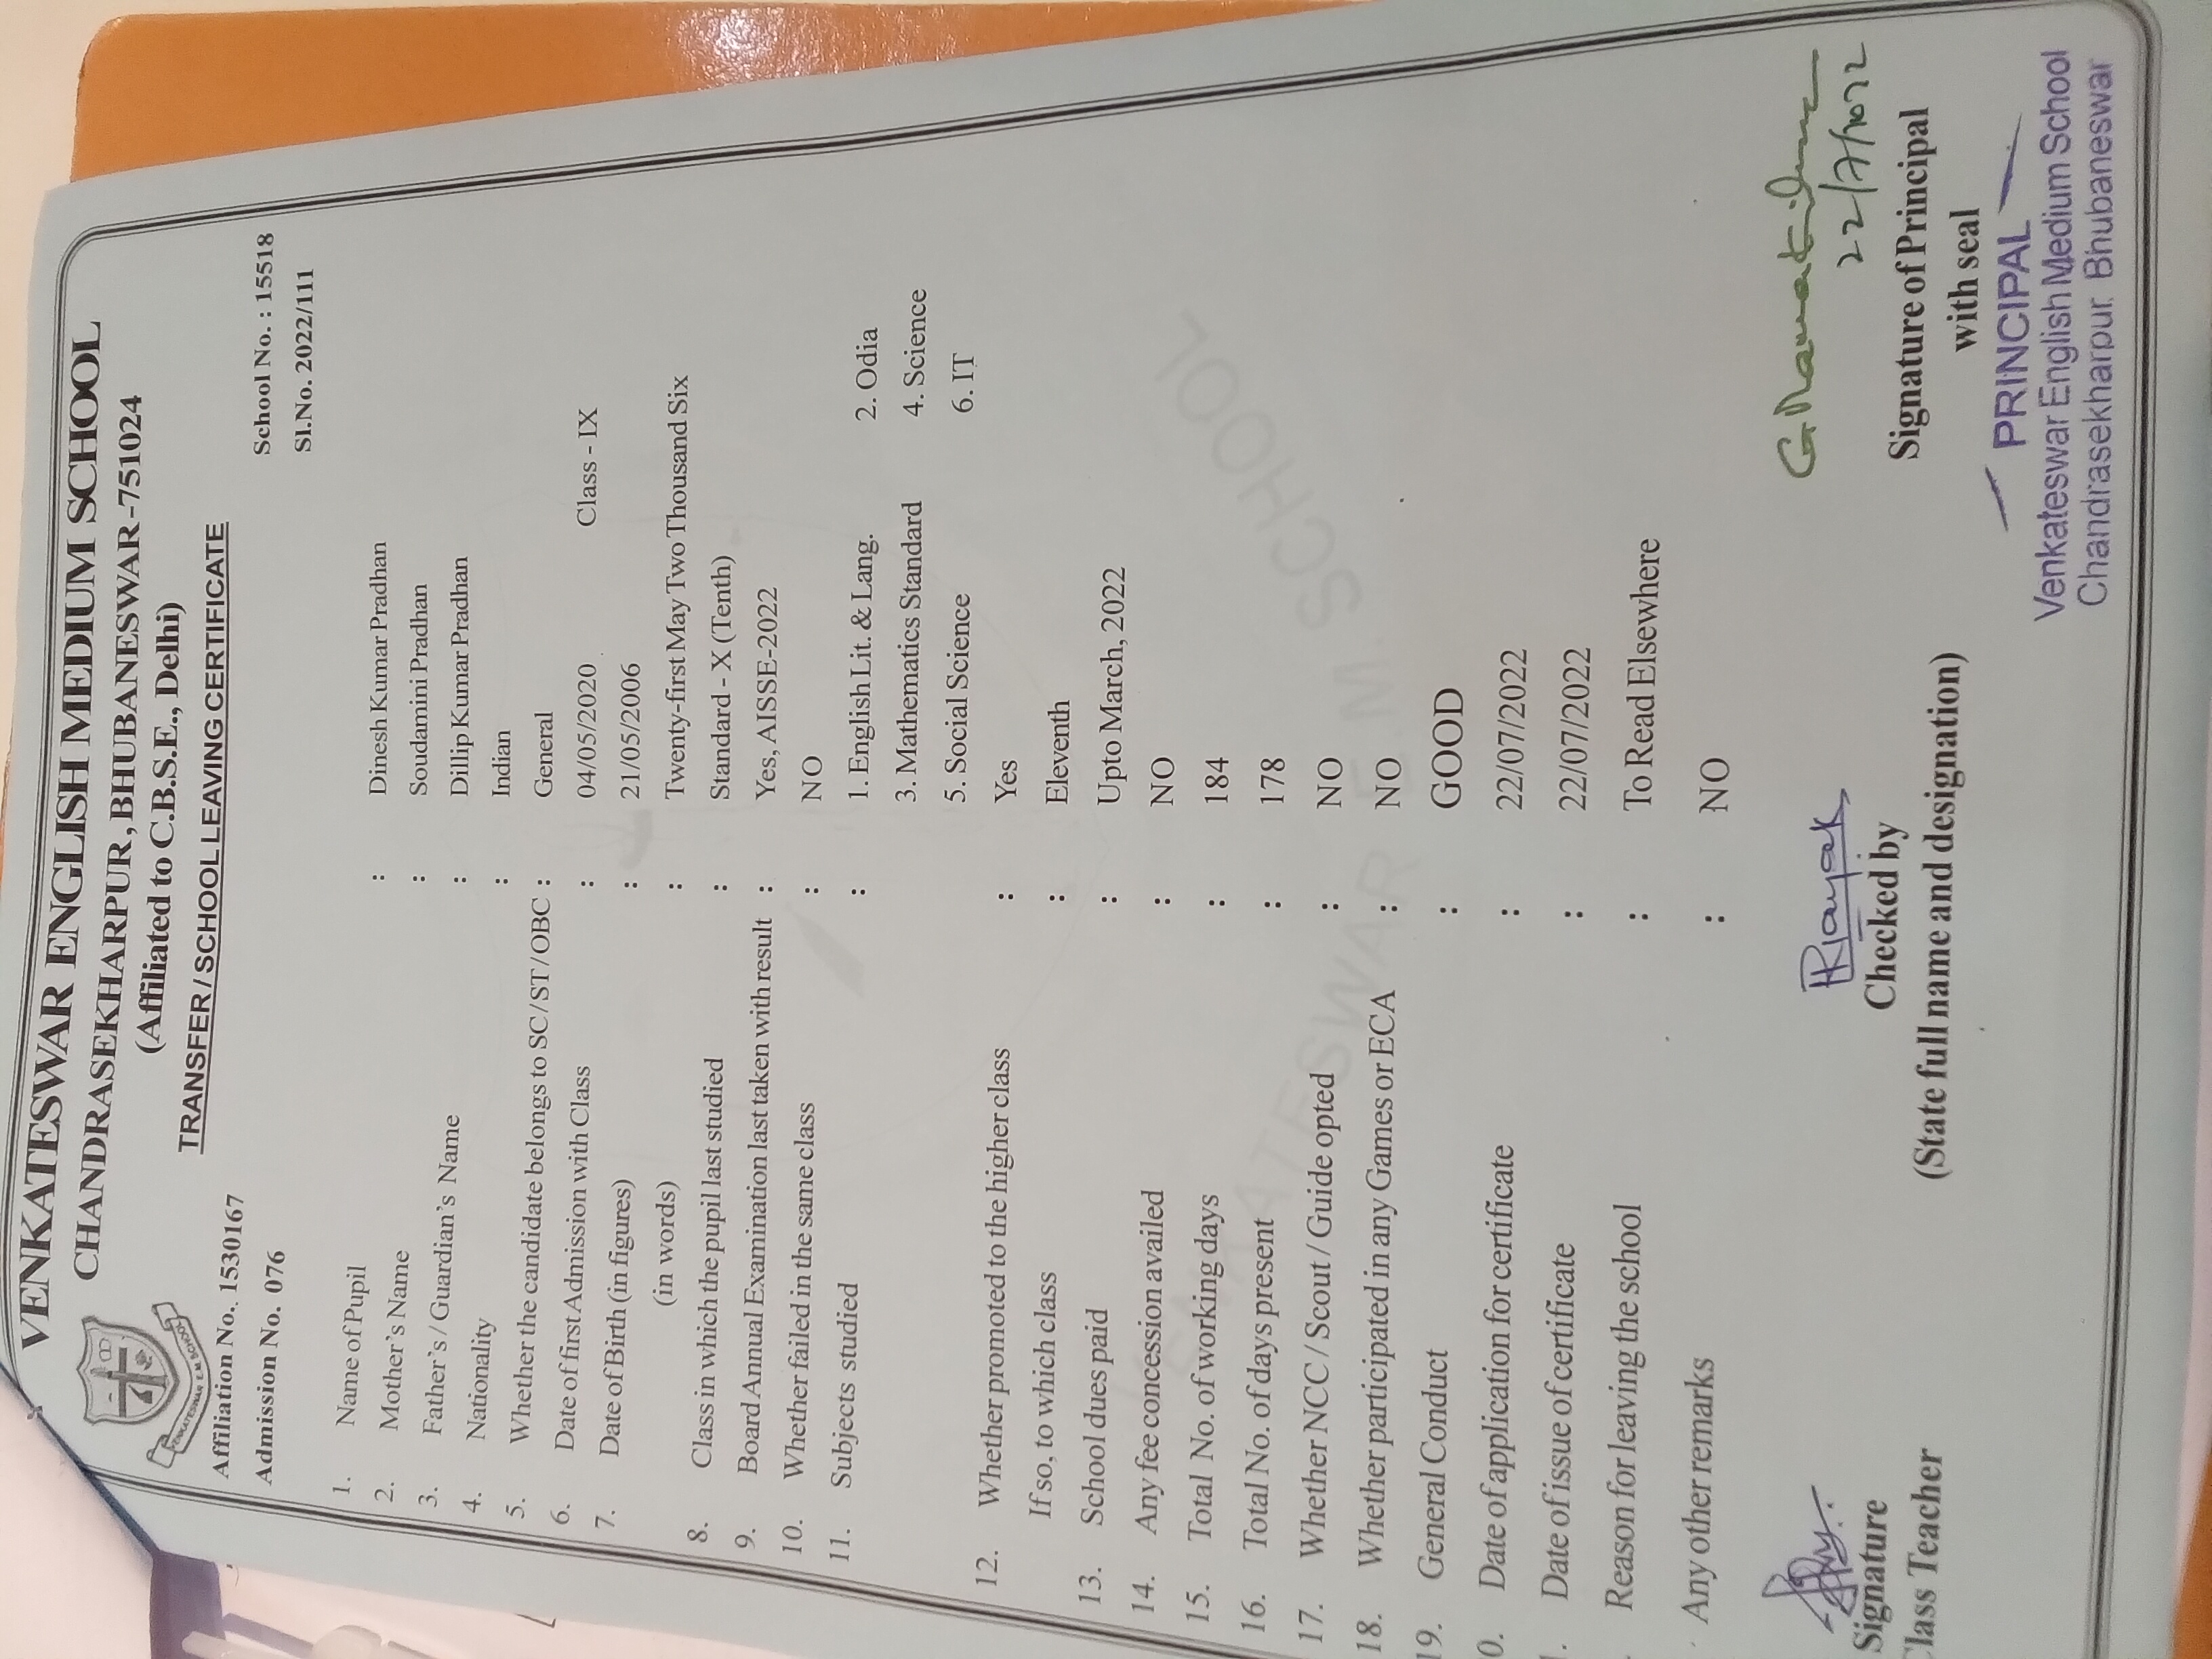 VENKATESWAR ENGLISH MEDIUM SCHOOL
CHANDRASEKHARPUR, BHUBANESWAR-751024
(Affiliated to C.B.S.E., Delhi)
TRANSFER / SCHOOL LEAVING CERTIFICATE
Affiliation No. 1530167 School No. : 15518
Admission No. 076 Sl.No. 2022/111
1. Name of Pupil : Dinesh Kumar Pradhan
2. Mother's Name : Soudamini Pradhan
3. Father's / Guardian's Name : Dillip Kumar Pradhan
4. Nationality : Indian
5. Whether the candidate belongs to SC/ST/OBC : General
6. Date of first Admission with Class : 04/05/2020 Class - IX
7. Date of Birth (in figures) : 21/05/2006
(in words) : Twenty-first May Two Thousand Six
8. Class in which the pupil last studied : Standard - X (Tenth)
9. Board Annual Examination last taken with result : Yes, AISSE-2022
10. Whether failed in the same class : NO
11. Subjects studied : 1. English Lit. & Lang. 2. Odia
3. Mathematics Standard 4. Science
5. Social Science 6. IT
12. Whether promoted to the higher class : Yes
If so, to which class : Eleventh
13. School dues paid : Upto March, 2022
14. Any fee concession availed : NO
15. Total No. of working days : 184
16. Total No. of days present : 178
17. Whether NCC / Scout / Guide opted : NO
18. Whether participated in any Games or ECA : NO
19. General Conduct : GOOD
0. Date of application for certificate : 22/07/2022
. Date of issue of certificate : 22/07/2022
Reason for leaving the school : To Read Elsewhere
Any other remarks : NO
22/7/2022
Signature Checked by Signature of Principal
Class Teacher (State full name and designation) with seal
PRINCIPAL
Venkateswar English Medium School
Chandrasekharpur, Bhubaneswar